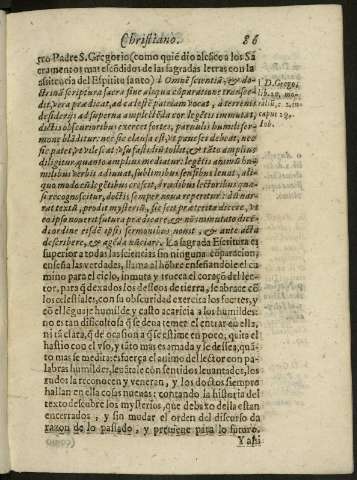 Christiano. 86
sto Padre S. Gregorio (como quiē dio alcāce a los Sa
cramentos mas escōdidos de las sagradas letras con la
assistencia del Espiritu santo) i Omnē scientiā, & do-
ctrinā scriptura sacra sine aliqua cōparatione transce-
dit, vera prædicat, ad cælestē patriam vocat, à terrenis
desiderijs ad superna amplectēda cor legētis immutat,
dictis obscurioribus exercet fortes, parvulis humili ser-
mone blāditur: nec sic clausa est, vt pavesci debeat, nec
sic patet, vt vilescat: vsu fastidiū tollit, & tāto amplius
diligitur quanto amplius meditatur: legētis animū hu-
milibus verbis adiuuat, sublimibus sensibus leuat, ali-
quo modo cū legētibus crescit, à rudibus lectoribus qua-
si recognoscitur, doctis semper noua reperitur: dū nar-
rat textū, prodit mysteriū, sic scit præterita dicere, vt
eo ipso nouerit futura prædicare, & nō immutato dicē-
di ordine eisdē ipsis sermonibus nouit, & ante acta
describere, & agēda nūciare. La sagrada Escritura es
superior a todas las sciencias sin ninguna cōparacion,
enseña las verdades, llama al hōbre enseñandole el ca
mino para el cielo, inmuta y trueca el coraçō del lec-
tor, para q̄ dexados los desseos de tierra, se abrace cō
los celestiales, con su obscuridad exercita los fuertes, y
cō el lēguaje humilde y casto acaricia a los humildes:
no es tan dificultosa q̄ se deua temer el entrar en ella,
ni tā clara, q̄ de ocasion a q̄ se estime en poco, quita el
hastio con el vso, y tāto mas es amada y se dessea, quā-
to mas se medita: esfuerça el animo del lector con pa-
labras humildes, leuātale con sentidos leuantados, los
rudos la reconocen y veneran, y los doctos siempre
hallan en ella cosas nueuas: contando la historia del
texto descubre los mysterios, que debaxo della estan
encerrados, y sin mudar el orden del discurso da
razon de lo passado, y preuiene para lo futuro.
Y assi
i D. Grego.
lib. 20. mo-
raliū, c. 1. in
caput 29.
Iob.